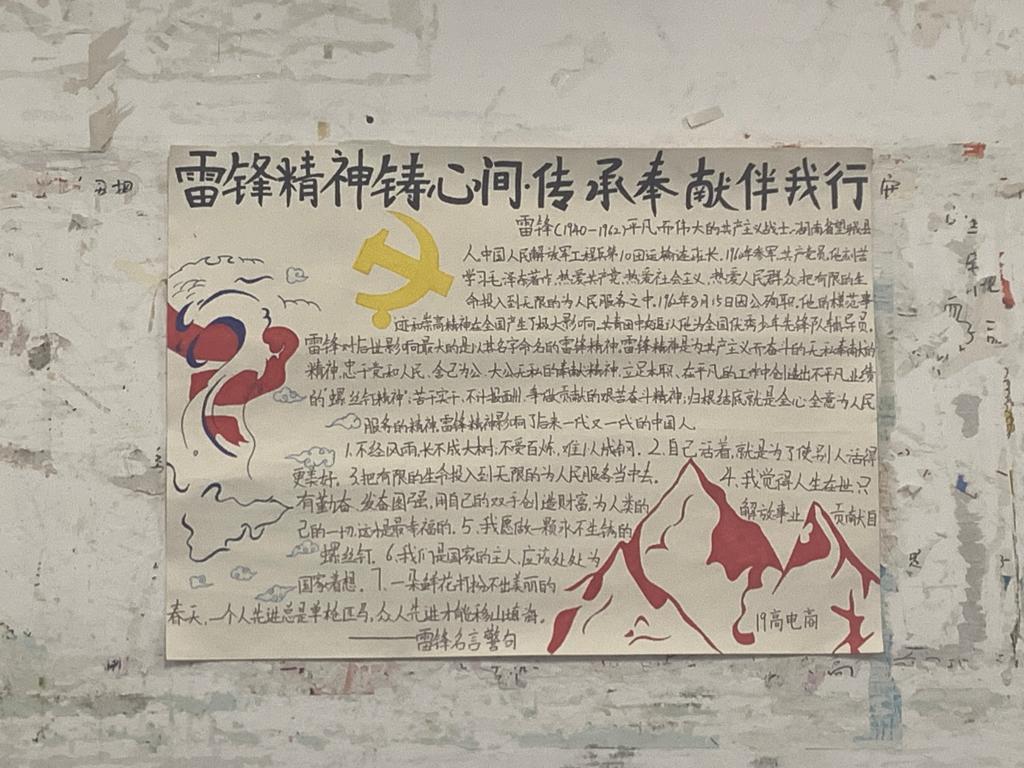 雷锋精神铸心间·传承奉献伴我行
雷锋(1940-1962)平凡而伟大的共产主义战士,湖南省望城县
人,中国人民解放军工程兵第10团运输连班长,1960年参军,共产党员,他刻苦
学习毛泽东著作,热爱共产党,热爱社会主义,热爱人民群众,把有限的生
命投入到无限的为人民服务之中,1962年8月15日因公殉职,他的模范事
迹和崇高精神在全国产生了极大影响,共青团中央追认他为全国优秀少年先锋队辅导员.
雷锋对后世影响最大的是以其名字命名的雷锋精神,雷锋精神是为共产主义而奋斗的无私奉献的
精神,忠于党和人民、舍己为公、大公无私的奉献精神,立足本职、在平凡的工作中创造出不平凡业绩
的"螺丝钉精神",苦干实干、不计报酬、争做贡献的艰苦奋斗精神,归根结底就是全心全意为人民
服务的精神,雷锋精神影响了后来一代又一代的中国人
1.不经风雨,长不成大树,不受百炼,难以成钢. 2.自己活着,就是为了使别人活得
更美好. 3.把有限的生命投入到无限的为人民服务当中去. 4.我觉得人生在世,只
有勤奋、发奋图强,用自己的双手创造财富,为人类的 解放事业 贡献自
己的一切,这才是最幸福的. 5.我愿做一颗永不生锈的
螺丝钉. 6.我们是国家的主人,应该处处为
国家着想. 7.一朵鲜花打扮不出美丽的
春天,一个人先进总是单枪匹马,众人先进才能移山填海.
——雷锋名言警句
19高电商